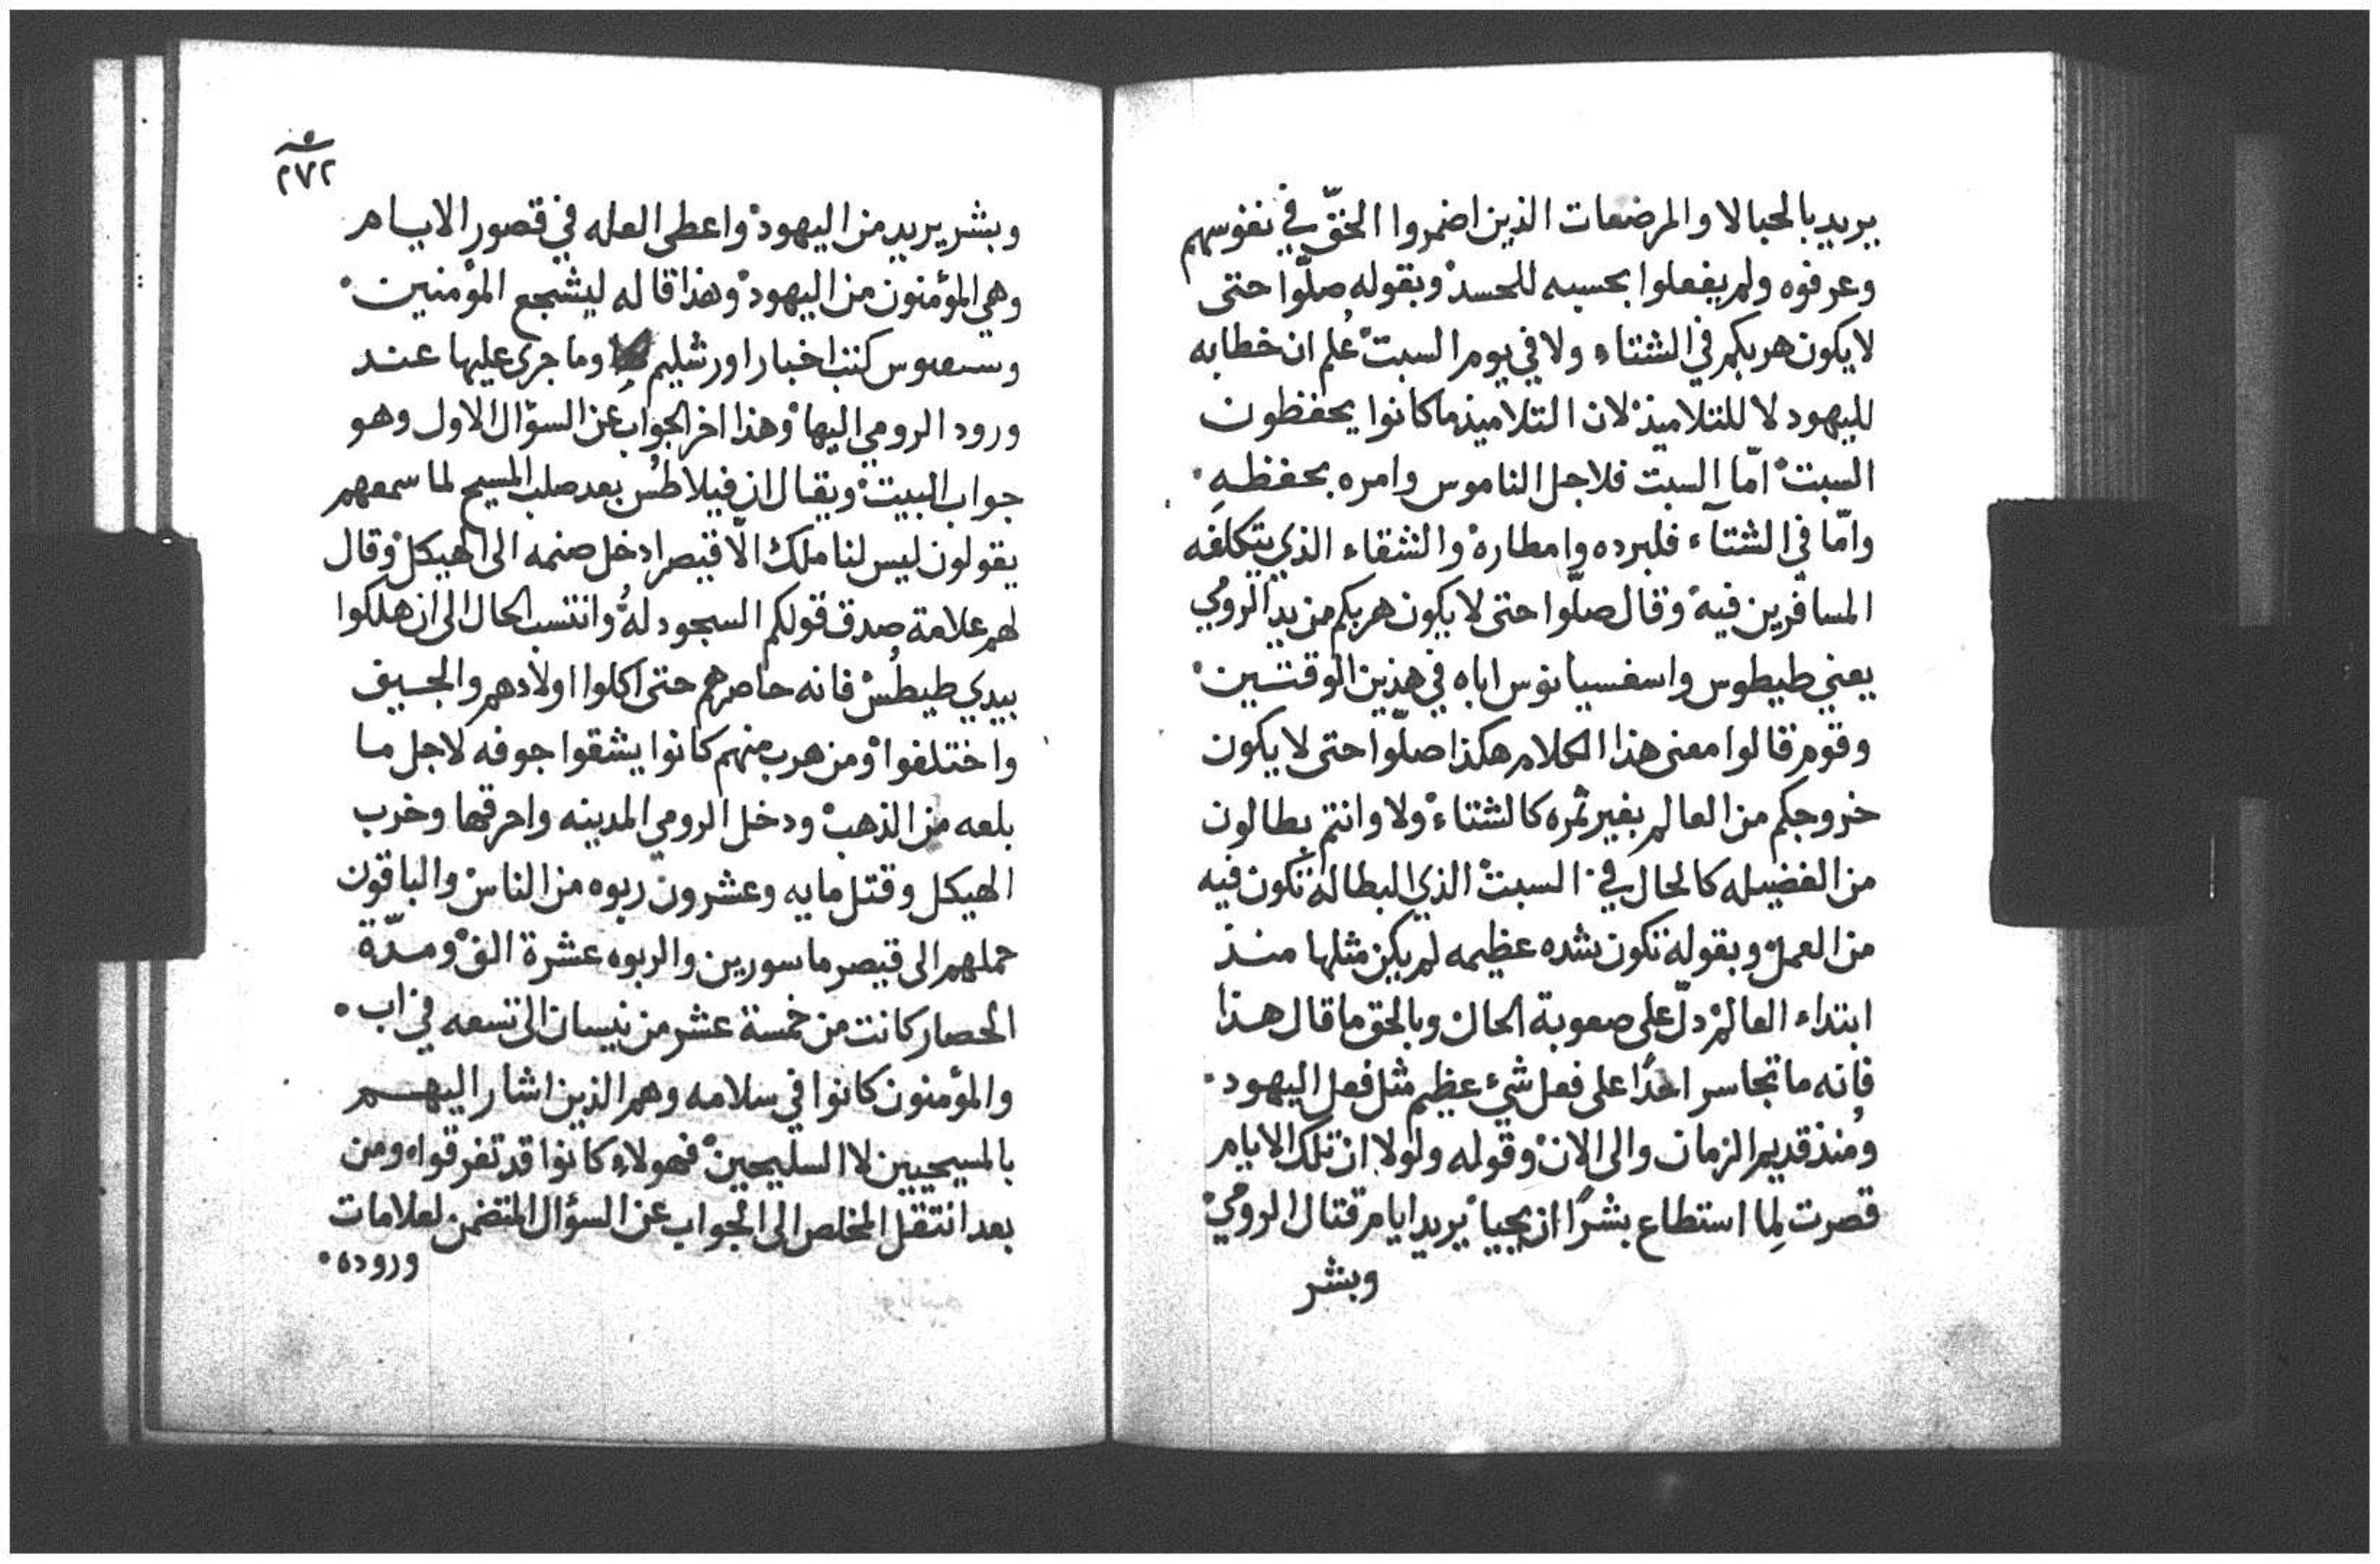 يريد بالحبالا والمرضعات الذين اضمروا الحقّ في نفوسهم
وعرفوه ولم يفعلوا بحسبه للحسد وبقوله صلّوا حتى
لا يكون هربكم في الشتاء ولا في يوم السبت عُلم ان خطابه
لليهود لا للتلاميذ لان التلاميذ ما كانوا يحفظون
السبت امّا السبت فلاجل الناموس وامره بحفظهِ
وامّا في الشتآء فلبرده وامطاره والشقاء الذي يتكلفه
المسافرين فيه وقال صلّوا حتى لا يكون هربكم من يد الرومي
يعني طيطوس واسفسيانوس اباه في هذين الوقتين
وقوم قالوا معنى هذا الكلام هكذا صلّوا حتى لا يكون
خروجكم من العالم بغير ثمره كالشتاء ولا وانتم بطالون
من الفضيله كالحال في السبت الذي البطاله تكون فيه
من العمل وبقوله تكون شده عظيمه لم يكن مثلها منذ
ابتداء العالم دلّ على صعوبة الحال وبالحق ما قال هذا
فانه ما تجاسر احدًا على فعل شيء عظيم مثل فعل اليهود
ومُنذ قديم الزمان والى الان وقوله ولولا ان تلك الايام
قصرت لِما استطاع بشرًا ان يحيا يريد ايام قتال الرومي
وبشر
٢٧٢
وبشر يريد من اليهود واعطى العله في قصور الايام
وهي المؤمنون من اليهود وهذا قاله ليشجع المؤمنين
كتب اخبار اورشليم وما جرى عليها عند
ورود الرومي اليها وهذا اخر الجواب عن السؤال الاول وهو
جواب البيت ويقال ان فيلاطُس بعد صلب المسيح لما سمعهم
يقولون ليس لنا ملك الّا قيصر ادخل صنمه الى الهيكل وقال
لهم علامة صدق قولكم السجود لهُ وانتسب الحال الى ان هلكوا
بيدي طيطُس فانه حاصرهم حتى اكلوا اولادهم والجيف
واختلفوا ومن هرب منهم كانوا يشقوا جوفه لاجل ما
بلعه من الذهب ودخل الرومي المدينه واحرقها وخرب
الهيكل وقتل مايه وعشرون ربوه من الناس والباقون
حملهم الى قيصر ماسورين والربوه عشرة الف ومدّة
الحصار كانت من خمسة عشر من نيسان الى تسعه في اب
والمؤمنون كانوا في سلامه وهم الذين اشار اليهم
بالمسيحيين لا السليحيين فهولاء كانوا قد تفرقوا ومن
بعد انتقل المخلص الى الجواب عن السؤال المتضمن لعلامات
وروده